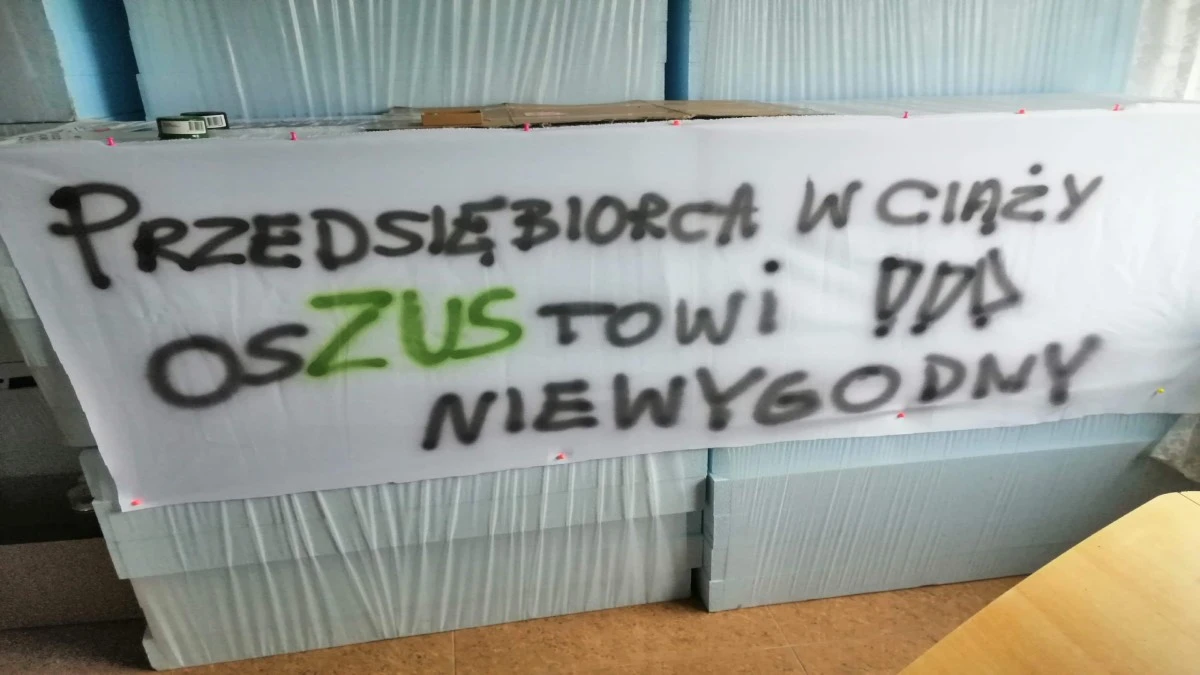 PRZEDSIĘBIORCA W CIĄŻY
OSZUSTOWI !!!
NIEWYGODNY